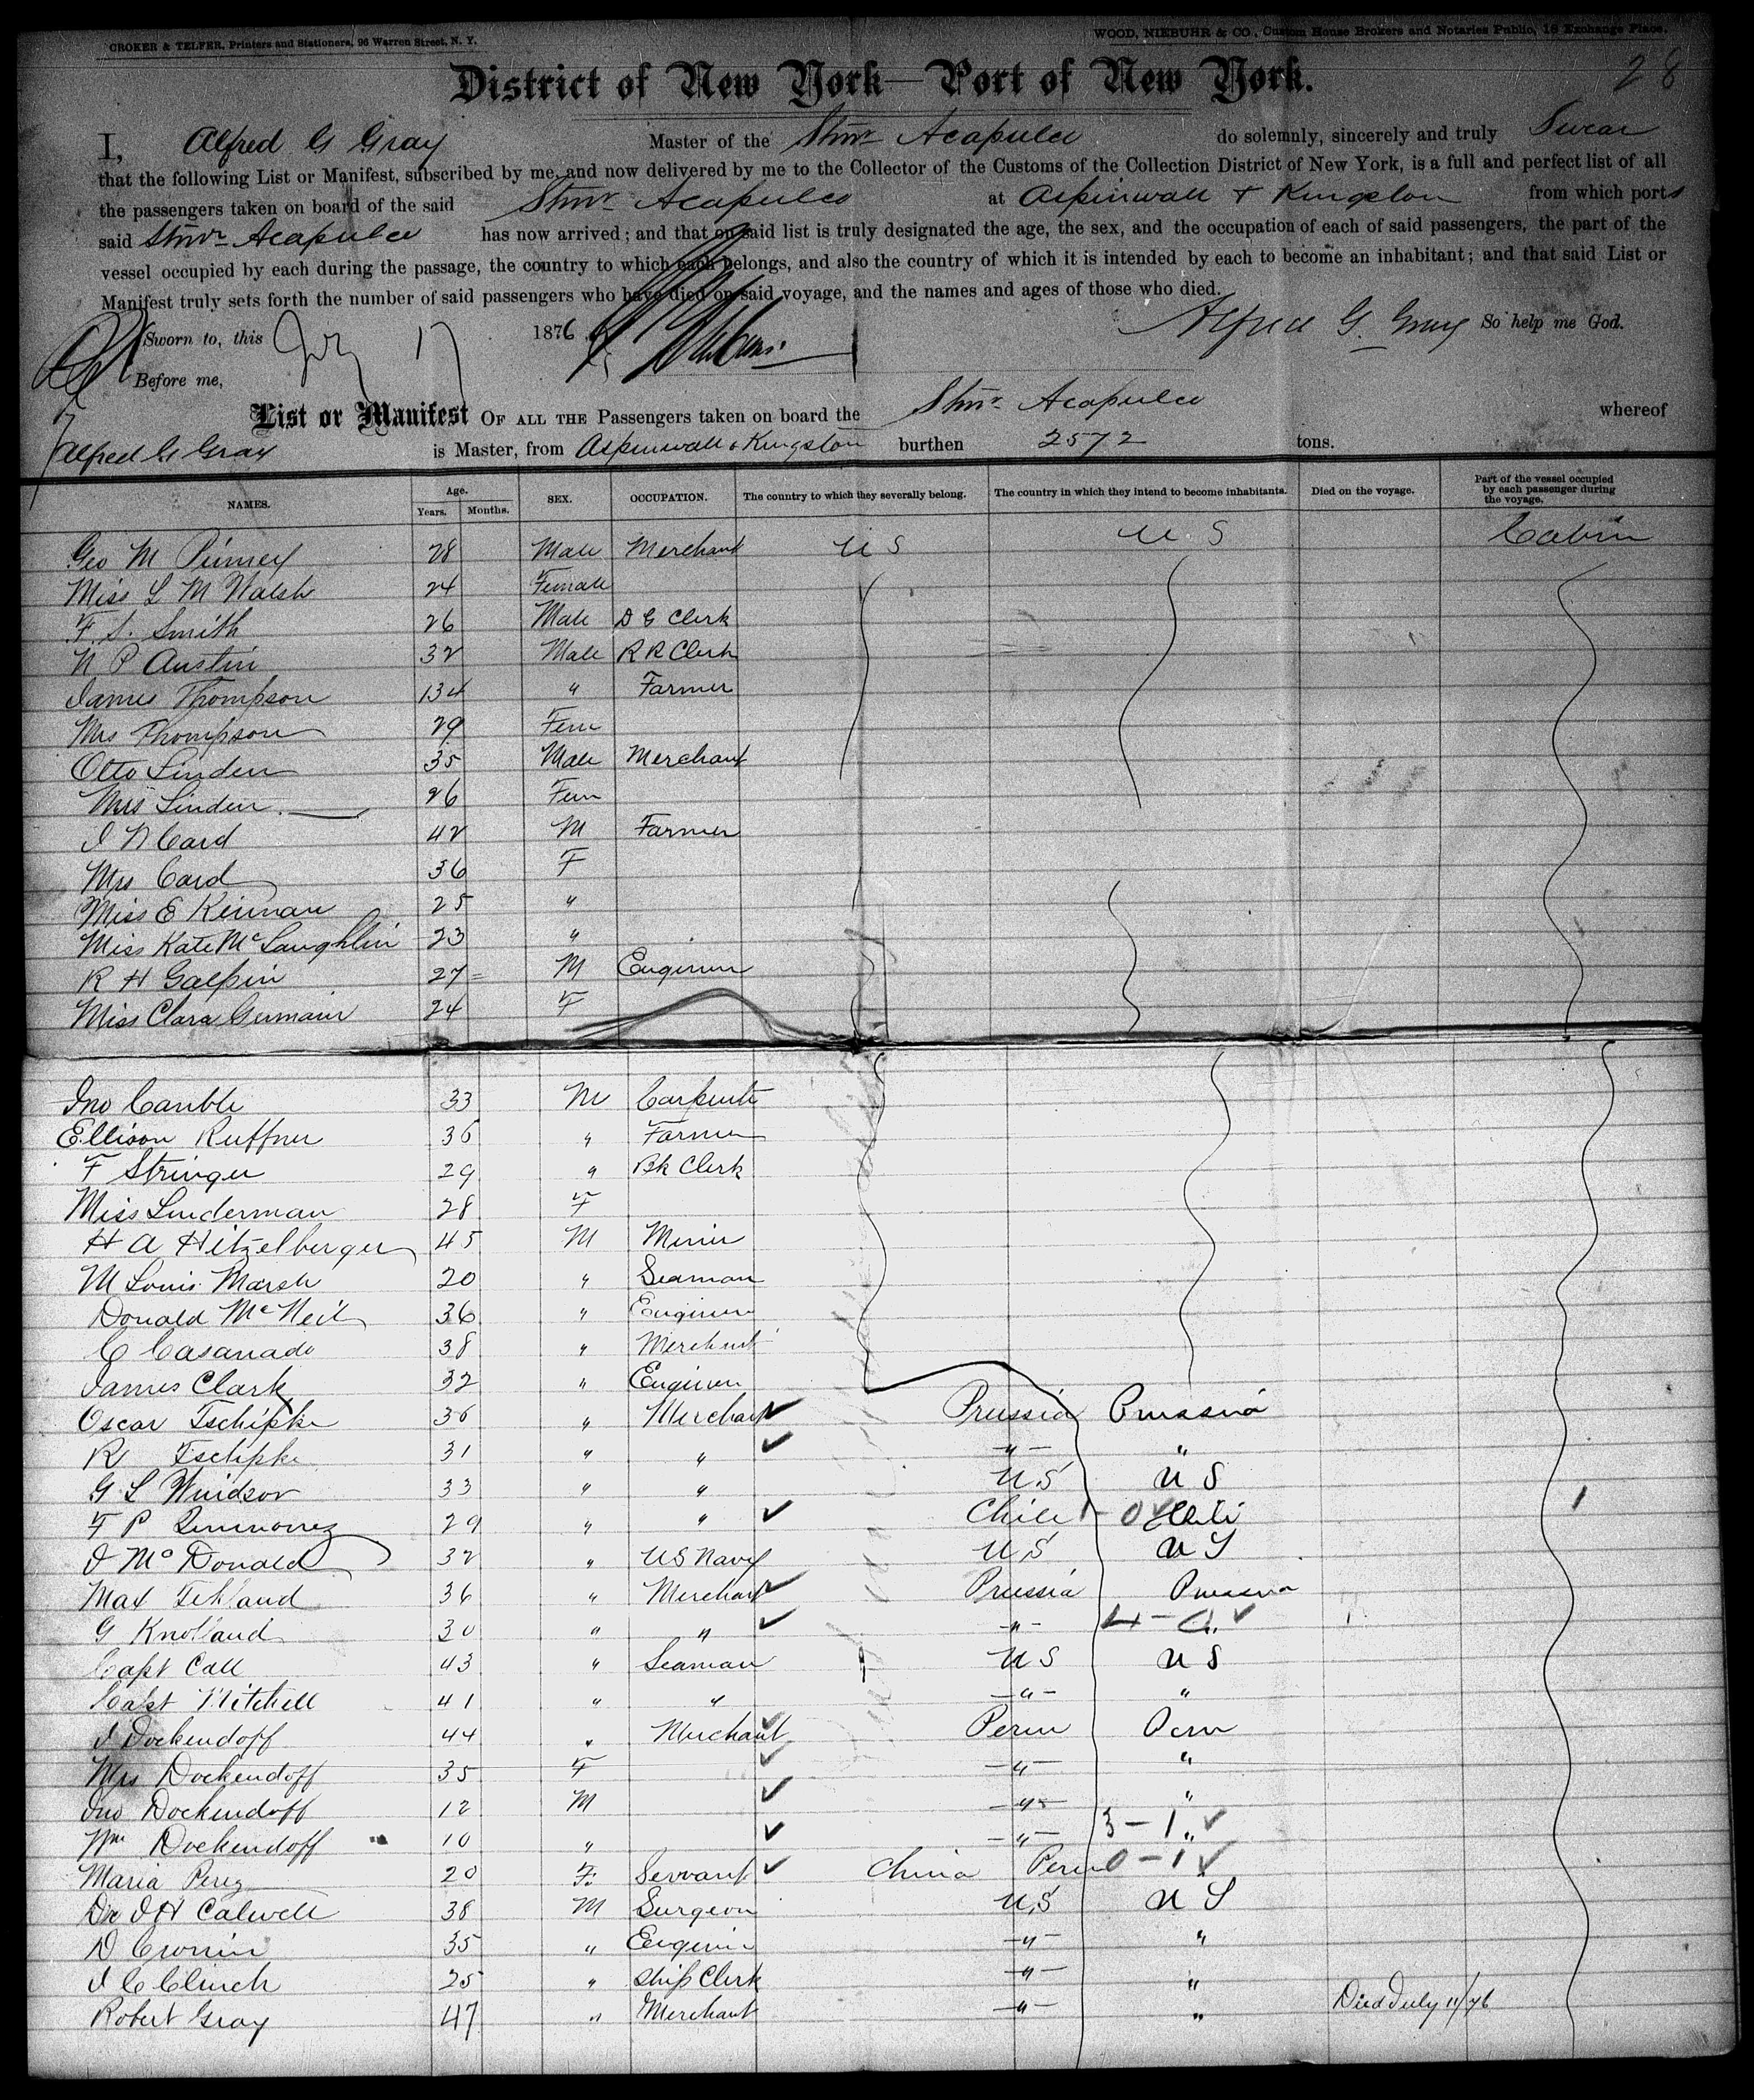 CROKER & TELFER, Printers and Stationers, 96 Warren Street, N. Y.
WOOD, NIEBUHR & CO., Custom House Brokers and Notaries Public, 18 Exchange Place.
28
District of New York—Port of New York.
I, Alfred G Gray Master of the Stmr Acapulco do solemnly, sincerely and truly Swear
that the following List or Manifest, subscribed by me, and now delivered by me to the Collector of the Customs of the Collection District of New York, is a full and perfect list of all
the passengers taken on board of the said Stmr Acapulco at Aspinwall + Kingston from which ports
said Stmr Acapulco has now arrived; and that on said list is truly designated the age, the sex, and the occupation of each of said passengers, the part of the
vessel occupied by each during the passage, the country to which each belongs, and also the country of which it is intended by each to become an inhabitant; and that said List or
Manifest truly sets forth the number of said passengers who have died on said voyage, and the names and ages of those who died.
Sworn to, this July 17 1876 Alfred G. Gray So help me God.
Before me,
List or Manifest OF ALL THE Passengers taken on board the Stmr Acapulco whereof
Alfred G Gray is Master, from Aspinwall & Kingston burthen 2572 tons.
NAMES. Age. Years. Months. SEX. OCCUPATION. The country to which they severally belong. The country in which they intend to become inhabitants. Died on the voyage. Part of the vessel occupied by each passenger during the voyage.
Geo M Pinney 28 Male Merchant U S U. S Cabin
Miss L M Walsh 24 Female
F. S. Smith 26 Male D G Clerk
N P Austin 32 Male R R Clerk
James Thompson 34 " Farmer
Mrs Thompson 29 Fem
Otto Linden 35 Male Merchant
Mrs Linden 26 Fem
I N Card 42 M Farmer
Mrs Card 36 F
Miss E Kernan 25 "
Miss Kate McLaughlin 23 "
R H Galpin 27 M Engineer
Miss Clara Germain 24 F
Jno Carible 33 M Carpenter
Ellison Ruffner 36 " Farmer
F Stringer 29 " Bk Clerk
Miss Linderman 28 F
H A Hitzelberger 45 M Miner
M Louis Marsh 20 " Seaman
Donald McNeil 36 " Engineer
C Casanado 38 " Merchant
James Clark 32 " Engineer
Oscar Tschipke 36 " Merchant Prussia Prussia
R Tschipke 31 " " " "
G L Windsor 33 " " U S U S
F P 29 " " Chile 1-0 Chili
J McDonald 32 " US Navy U S U S
Max 36 " Merchant Prussia Prussia
G Knoland 30 " " " 4-0 "
Capt Call 43 " Seaman U S U S
Capt Mitchell 41 " " " "
J Dockendoff 44 " Merchant Peru Peru
Mrs Dockendoff 35 F " "
Jno Dockendoff 12 M " "
Wm Dockendoff 10 " " 3-1 "
Maria Perez 20 F. Servant China Peru 0-1
Dr J H Calwell 38 M Surgeon U.S U S
D Cronin 35 " Engineer " "
J C Clinch 25 " Ship Clerk " "
Robert Gray 47 " Merchant " " Died July 11/76